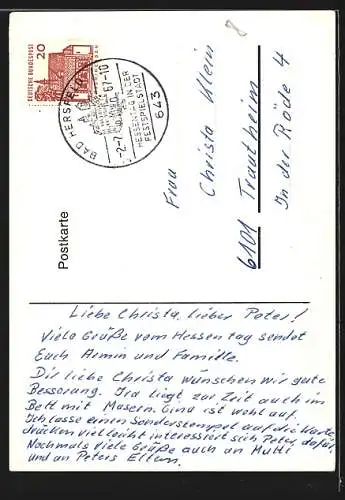 8
DEUTSCHE BUNDESPOST
20
BAD HERSFELD
-2-7. 67-10
HESSENTAG IN DER
FESTSPIELSTADT
643
Postkarte
Frau
Christa Klein
6101 Trautheim
In der Röde 4
Liebe Christa, lieber Peter!
Viele Grüße vom Hessentag sendet
Euch Armin und Familie.
Dir liebe Christa wünschen wir gute
Besserung. Ira liegt zur Zeit auch im
Bett mit Masern. Gina ist wohl auf.
Ich lasse einen Sonderstempel auf die Karte
drücken vielleicht interessiert sich Peter dafür.
Nochmals viele Grüße auch an Mutti
und an Peters Eltern.